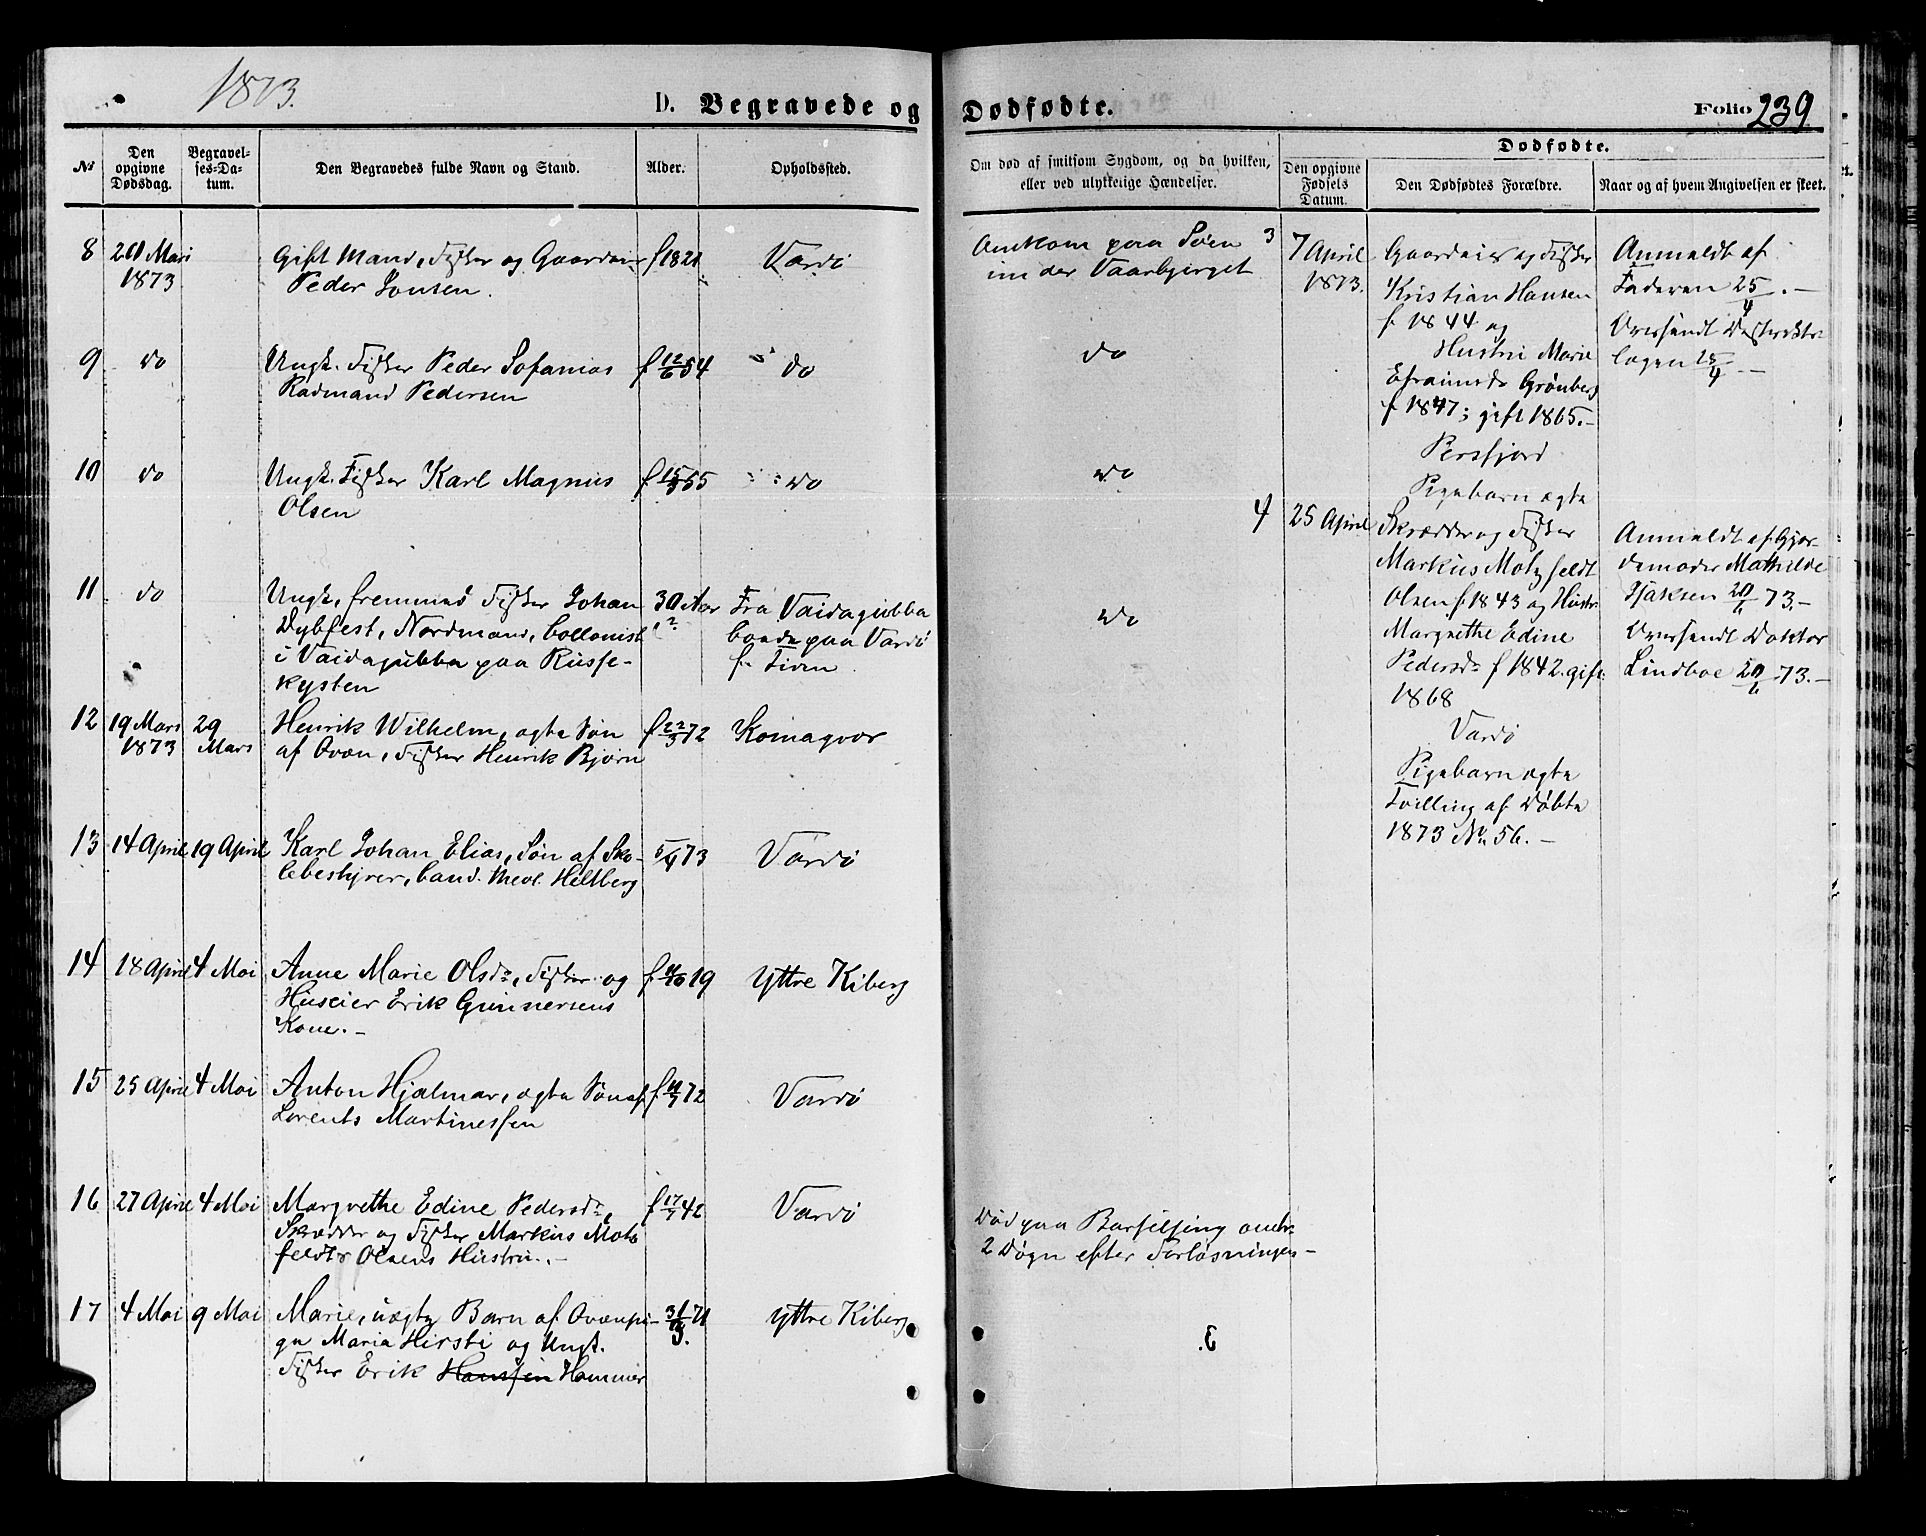 1873.
D. Begravede og Dødfødte.
Folio 239
No
Den opgivne Dødsdag.
Begravelses-Datum.
Den Begravedes fulde Navn og Stand.
Alder.
Opholdssted.
Om død af smitsom Sygdom, og da hvilken, eller ved ulykkelige Hændelser.
Dødfødte.
Den opgivne Fødsels Datum.
Den Dødfødtes Forældre.
Naar og af hvem Angivelsen er skeet.
8 20 Mars 1873
Gift Mand, Fisker og Gaardeier f 1821 Vardø
Peder Jonsen.
Omkom paa Søen
under Vaarbjerget
9 do Ungk. Fisker Peder Sofanias f 12/6 54 do do
Radmand Pedersen
10 do Ungk. Fisker Karl Magnus f. 15/3 55 do do
Olsen
11 do Ungk. fremmed Fisker Johan 30 Aar Fra Vaidagubba do
Dybfest, Nordmand, collonist ? boende paa Vardø
i Vaidagubba paa Russe- f. Tiden
kysten
12 19 Mars 1873 29 Mars Henrik Wilhelm, ægte Søn f 22/3 72 Komagvær
af Qvæn, Fisker Henrik Bjørn
13 14 April 19 April Karl Johan Elias, Søn af Sko- 5/4 73 Vardø
lebestyrer, cand. theol. Heltberg
14 18 April 4 Mai Anne Marie Olsdr, Fisker og f. 4/10 19 Yttre Kiberg
Huseier Erik Gunnersens
Kone. -
15 25 April 4 Mai Anton Hjalmar, ægte Søn af f 11/7 72 Vardø
Lorents Martinessen
16 27 April 4 Mai Margrethe Edine Pedersdr, f 17/7 42 Vardø
Skrædder og Fisker Markus Motz
feldt Olsens Hustru. -
Død paa Barselseng omtr.
2 Døgn efter Forløsningen -
17 4 Mai 9 Mai Marie, uægte Barn af Qvænpi- 71 Yttre Kiberg
ge Maria Hirsti og Ungk.
Fisker Erik Hanssen Hammer
3 7 April 1873.
Gaardeier og Fisker
Kristian Hansen
f. 1844 og
Hustru Marie
Efraimsdr Grønberg
f 1847; gift 1865. -
Persfjord
Pigebarn ægte
Anmeldt af
Faderen 25/4. -
Oversendt Distrikts-
lægen 25/4 -
4 25 April
Skrædder og Fisker
Markus Motzfeldt
Olsen f. 1843 og Hustr.
Margrethe Edine
Pedersdr f 1842. gift.
1868
Vardø
Pigebarn ægte
Tvilling af Døbte
1873 No. 56. -
Anmeldt af Gjor-
demoder Mathilde
Isaksen 20/6 73. -
Oversendt Doktor
Lindboe 20/6 73. -